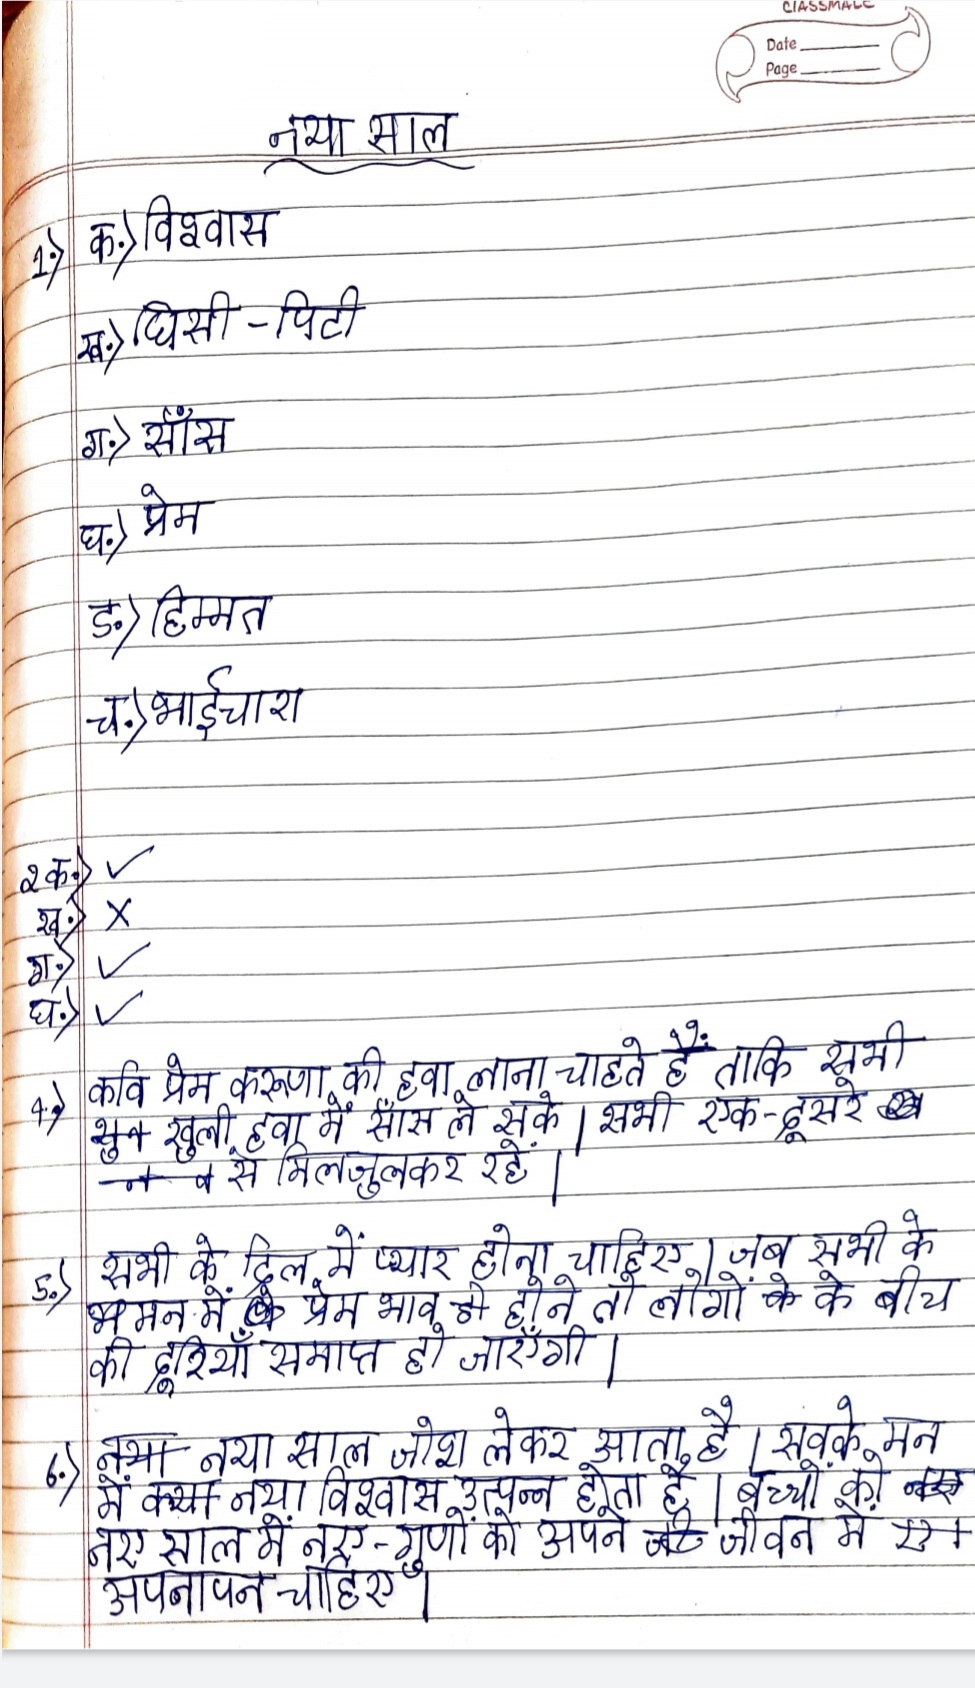 CLASSMATE
Date
Page
नया साल
1.) क.) विश्वास
ख.) घिसी - पिटी
ग.) साँस
घ.) प्रेम
ड.) हिम्मत
च.) भाईचारा
2 क.) ✓
ख.) X
ग.) ✓
घ.) ✓
4.) कवि प्रेम करूणा की हवा लाना चाहते हैं ताकि सभी
खुली हवा में साँस ले सके | सभी एक-दूसरे
से मिलजुलकर रहें |
5.) सभी के दिल में प्यार होना चाहिए | जब सभी के
मन में प्रेम भाव होने तो लोगों के के बीच
की दूरियाँ समाप्त हो जाएँगी |
6.) नया नया साल जोश लेकर आता है | सबके मन
में नया विश्वास उत्पन्न होता है | बच्चों को
नए साल में नए-गुणों को अपने जीवन में
अपनापन चाहिए |